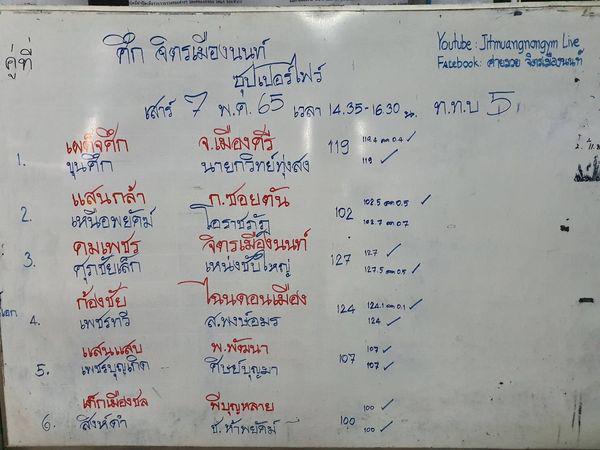 Youtube : Jitmuangnongym Live
Facebook: ค่ายมวย จิตรเมืองนนท์
คู่ที่
ศึก จิตรเมืองนนท์
ซุปเปอร์ไฟว์
เสาร์ 7 พ.ค. 65 เวลา 14.35-16.30 น. ท.ท.บ 5
เผด็จศึก จ.เมืองศรี 119 119.4 ลด 0.4 ✓
1. ขุนศึก นายกวิทย์ทุ่งสง 119 ✓
แสนกล้า ก.ซอยตัน 102.5 ลด 0.5 ✓
2. เหนือพยัคฆ์ โอราชภัฏ 102 102.7 ลด 0.7
คมเพชร จิตรเมืองนนท์ 127 ✓
3. ศรชัยเล็ก เหน่งซับใหญ่ 127 127.5 ลด 0.5 ✓
ก้องชัย ไฉนดอนเมือง 124.1 ลด 0.1 ✓
เอก 4. เพชรทวี ส.พงษ์อมร 124 124 ✓
แสนแสบ พ.พัฒนา 107 ✓
5. เพชรบุญเกิด ศิษย์บุญมา 107 107 ✓
เด็กเมืองชล พีบุญหลาย 100 ✓
6. สิงห์ดำ ช.ห้าพยัคฆ์ 100 100 ✓